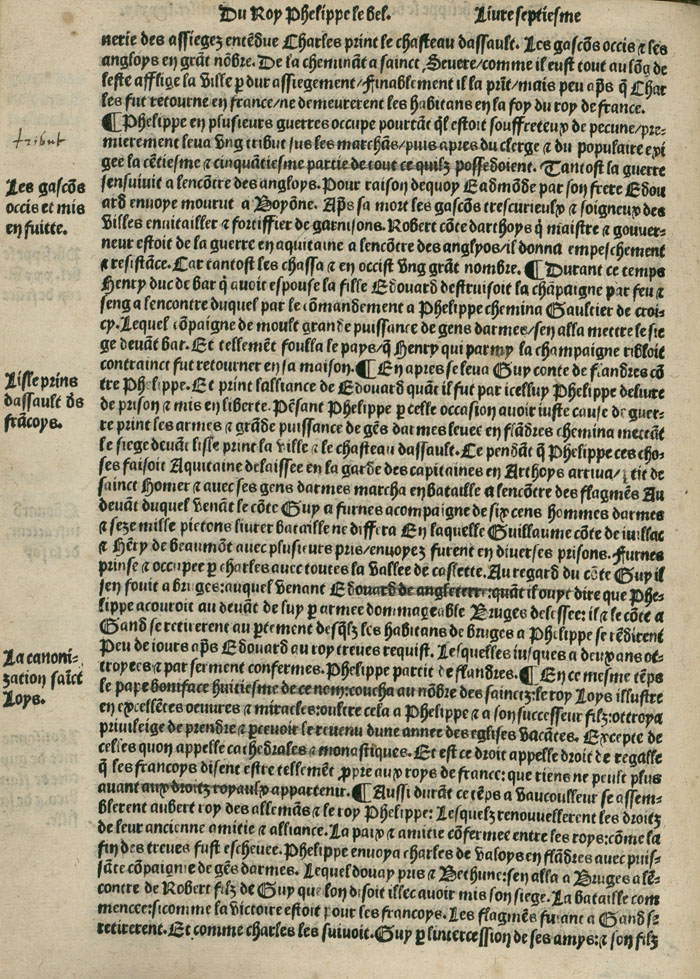 Du Roy Phelippe le bel. Livre septiesme
nerie des assiegez entẽdue Charles print le chasteau dassault. Les gascõs occis ⁊ les
angloys en grãt nõbre. De la cheminãt a sainct Severe/comme il eust tout au lõg de
leste afflige la ville p dur assiegement/finablement il la prĩt/mais peu aps̃ q̃ Char
les fut retourne en france/ne demeurerent les habitans en la foy du roy de france.
¶Phelippe en plusieurs guerres occupe pourtãt q̃l estoit souffreteux de pecune/pre-
mierement leva vng tribut sus les marchãs/puis apres du clerge ⁊ du populaire exi
tribut
gee la cẽtiesme ⁊ cinquãtiesme partie de tout ce quilz possedoient. Tantost la guerre
sensuivit a lencõtre des angloys. Pour raison dequoy Eadmõde par son frere Edou
Les gascõs
occis et mis
en fuitte.
ard envoye mourut a Boyõne. Aps̃ sa mort les gascõs trescurieulx ⁊ soigneux des
villes envitailler ⁊ fortiffier de garnisons. Robert cõte darthoys q̃ maistre ⁊ gouver-
neur estoit de la guerre en aquitaine a lencõtre des anglyos/il donna empeschement
⁊ resistãce. Car tantost les chassa ⁊ en occist vng grãt nombre. ¶Durant ce temps
Henry duc de bar q̃ avoit espouse la fille Edouard destruisoit la chãpaigne par feu ⁊
seng a lencontre duquel par le cõmandement a Phelippe chemina Gaultier de croi-
cy. Lequel cõpaigne de moult grande puissance de gens darmee/sen alla mettre le sie
ge devãt bar. Et tellemẽt foulla le pays/q̃ Henry qui parmy la champaigne ribloit
contrainct fut retourner en sa maison. ¶En apres se leva Guy conte de flandres cõ
Lisle prins
dassault ðs
frãcoys.
tre Phelippe. Et print lalliance de Edouard quãt il fut par icelluy Phelippe delivre
de prison ⁊ mis en liberte. Pẽsant Phelippe p celle occasion avoir iuste cause de guer-
re print les armes ⁊ grãde puissance de gẽs darmes levee en flãdres chemina mettãt
le siege devãt lisle print la ville ⁊ le chasteau dassault. Ce pendãt q̃ Phelippe ces cho-
ses faisoit Aquitaine delaissee en la garde des capitaines en Arthoys arriva/ptit de
sainct Homer ⁊ avec ses gens darmes marcha en bataille a lencõtre des flagmẽs Au
devãt duquel venãt le cõte Guy a furnes acompaigne de six cens hommes darmes
⁊ seze mille pietons livrer bataille ne differa En laquelle Guillaume cõte de iuillac
⁊ Hẽry de beaumõt avec plusieurs pris/envoyez furent en diverses prisons. Furnes
prinse ⁊ occupee p charles avec toutes la vallee de caslette. Au regard du cõte Guy il
sen fouit a bruges: auquel venant Edouard de angleterre: quãt il ouyt dire que Phe-
lippe acouroit au devãt de luy p armee dommageable Bruges delessee: il ⁊ le cõte a
Gand se retirerent au ptement desq̃lz les habitans de bruges a Phelippe se rẽdirent
Peu de iours aps̃ Edouard au roy treves requist. Lesquelles iusques a deux ans ot-
La canoni-
zation saĩct
Loys.
troyees ⁊ par serment confermes. Phelippe partit de flandres. ¶En ce mesme tẽps
le pape boniface huitiesme de ce nom: coucha au nõbre des sainctz: le roy Loys illustre
en excellẽtes oeuvres ⁊ miracles: oultre cela a Phelippe ⁊ a son successeur filz: ottroya
privileige de prendre ⁊ pcevoir le revenu dune annee des eglises vacãtes. Excepte de
celles quon appelle cathedrales ⁊ monastiques. Et est ce droit appelle droit de regalle
q̃ les francoys disent estre tellemẽt ppre aux roys de france: que riens ne peult plus
avant aux droitz royaulx appartenir. ¶Aussi durãt ce tẽps a Vaucoulleur se assem-
blerent aubert roy des allemãs ⁊ le roy Phelippe: Lesquelz renouvellerent les droitz
de leur ancienne amitie ⁊ alliance. La paix ⁊ amitie cõfermee entre les roys: cõme la
fin des treves fust eschevee. Phelippe envoya charles de valoys en flãdres avec puis-
sãte cõpaignie de gẽs darmes. Lequel douay pris ⁊ Bethune: sen alla a Bruges a lẽ-
contre de Robert filz de Guy que lon disoit illec avoir mis son siege. La bataille com
mencee: sicomme la victoire estoit pour les francoys. Les flagmẽs fuyant a Gand se
retirerent. Et comme charles les suivoit. Guy p lintercession de ses amys: ⁊ son filz